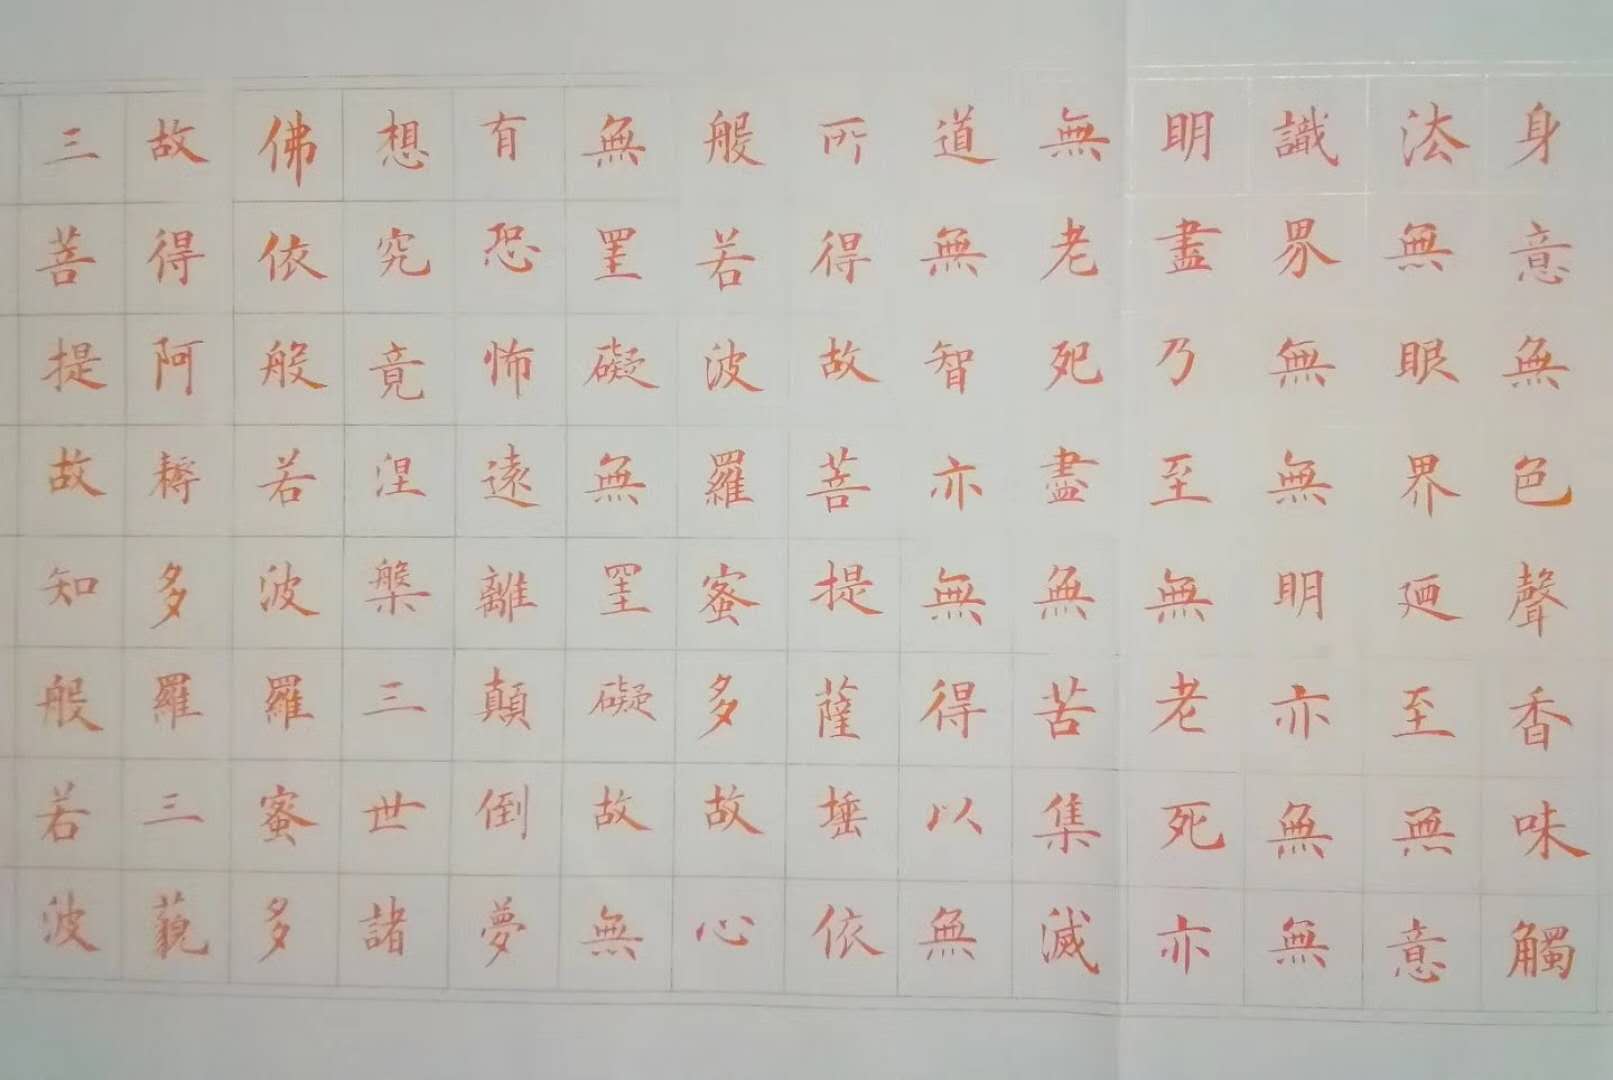 身意無色聲香味觸
法無眼界廼至無意
識界無無明亦無無
明盡乃至無老死亦
無老死盡無苦集滅
道無智亦無得以無
所得故菩提薩埵依
般若波羅蜜多故心
無罣礙無罣礙故無
有恐怖遠離顛倒夢
想究竟涅槃三世諸
佛依般若波羅蜜多
故得阿耨多羅三藐
三菩提故知般若波